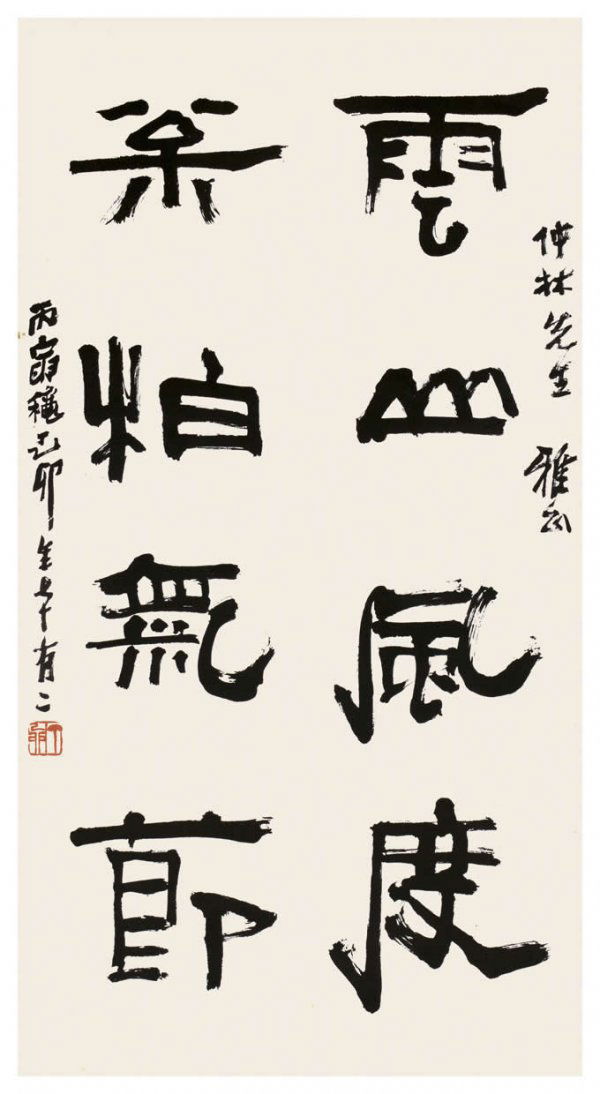 仲林先生 雅正
雲山風度
枀柏氣節
丙寅穐己卯年七十有二